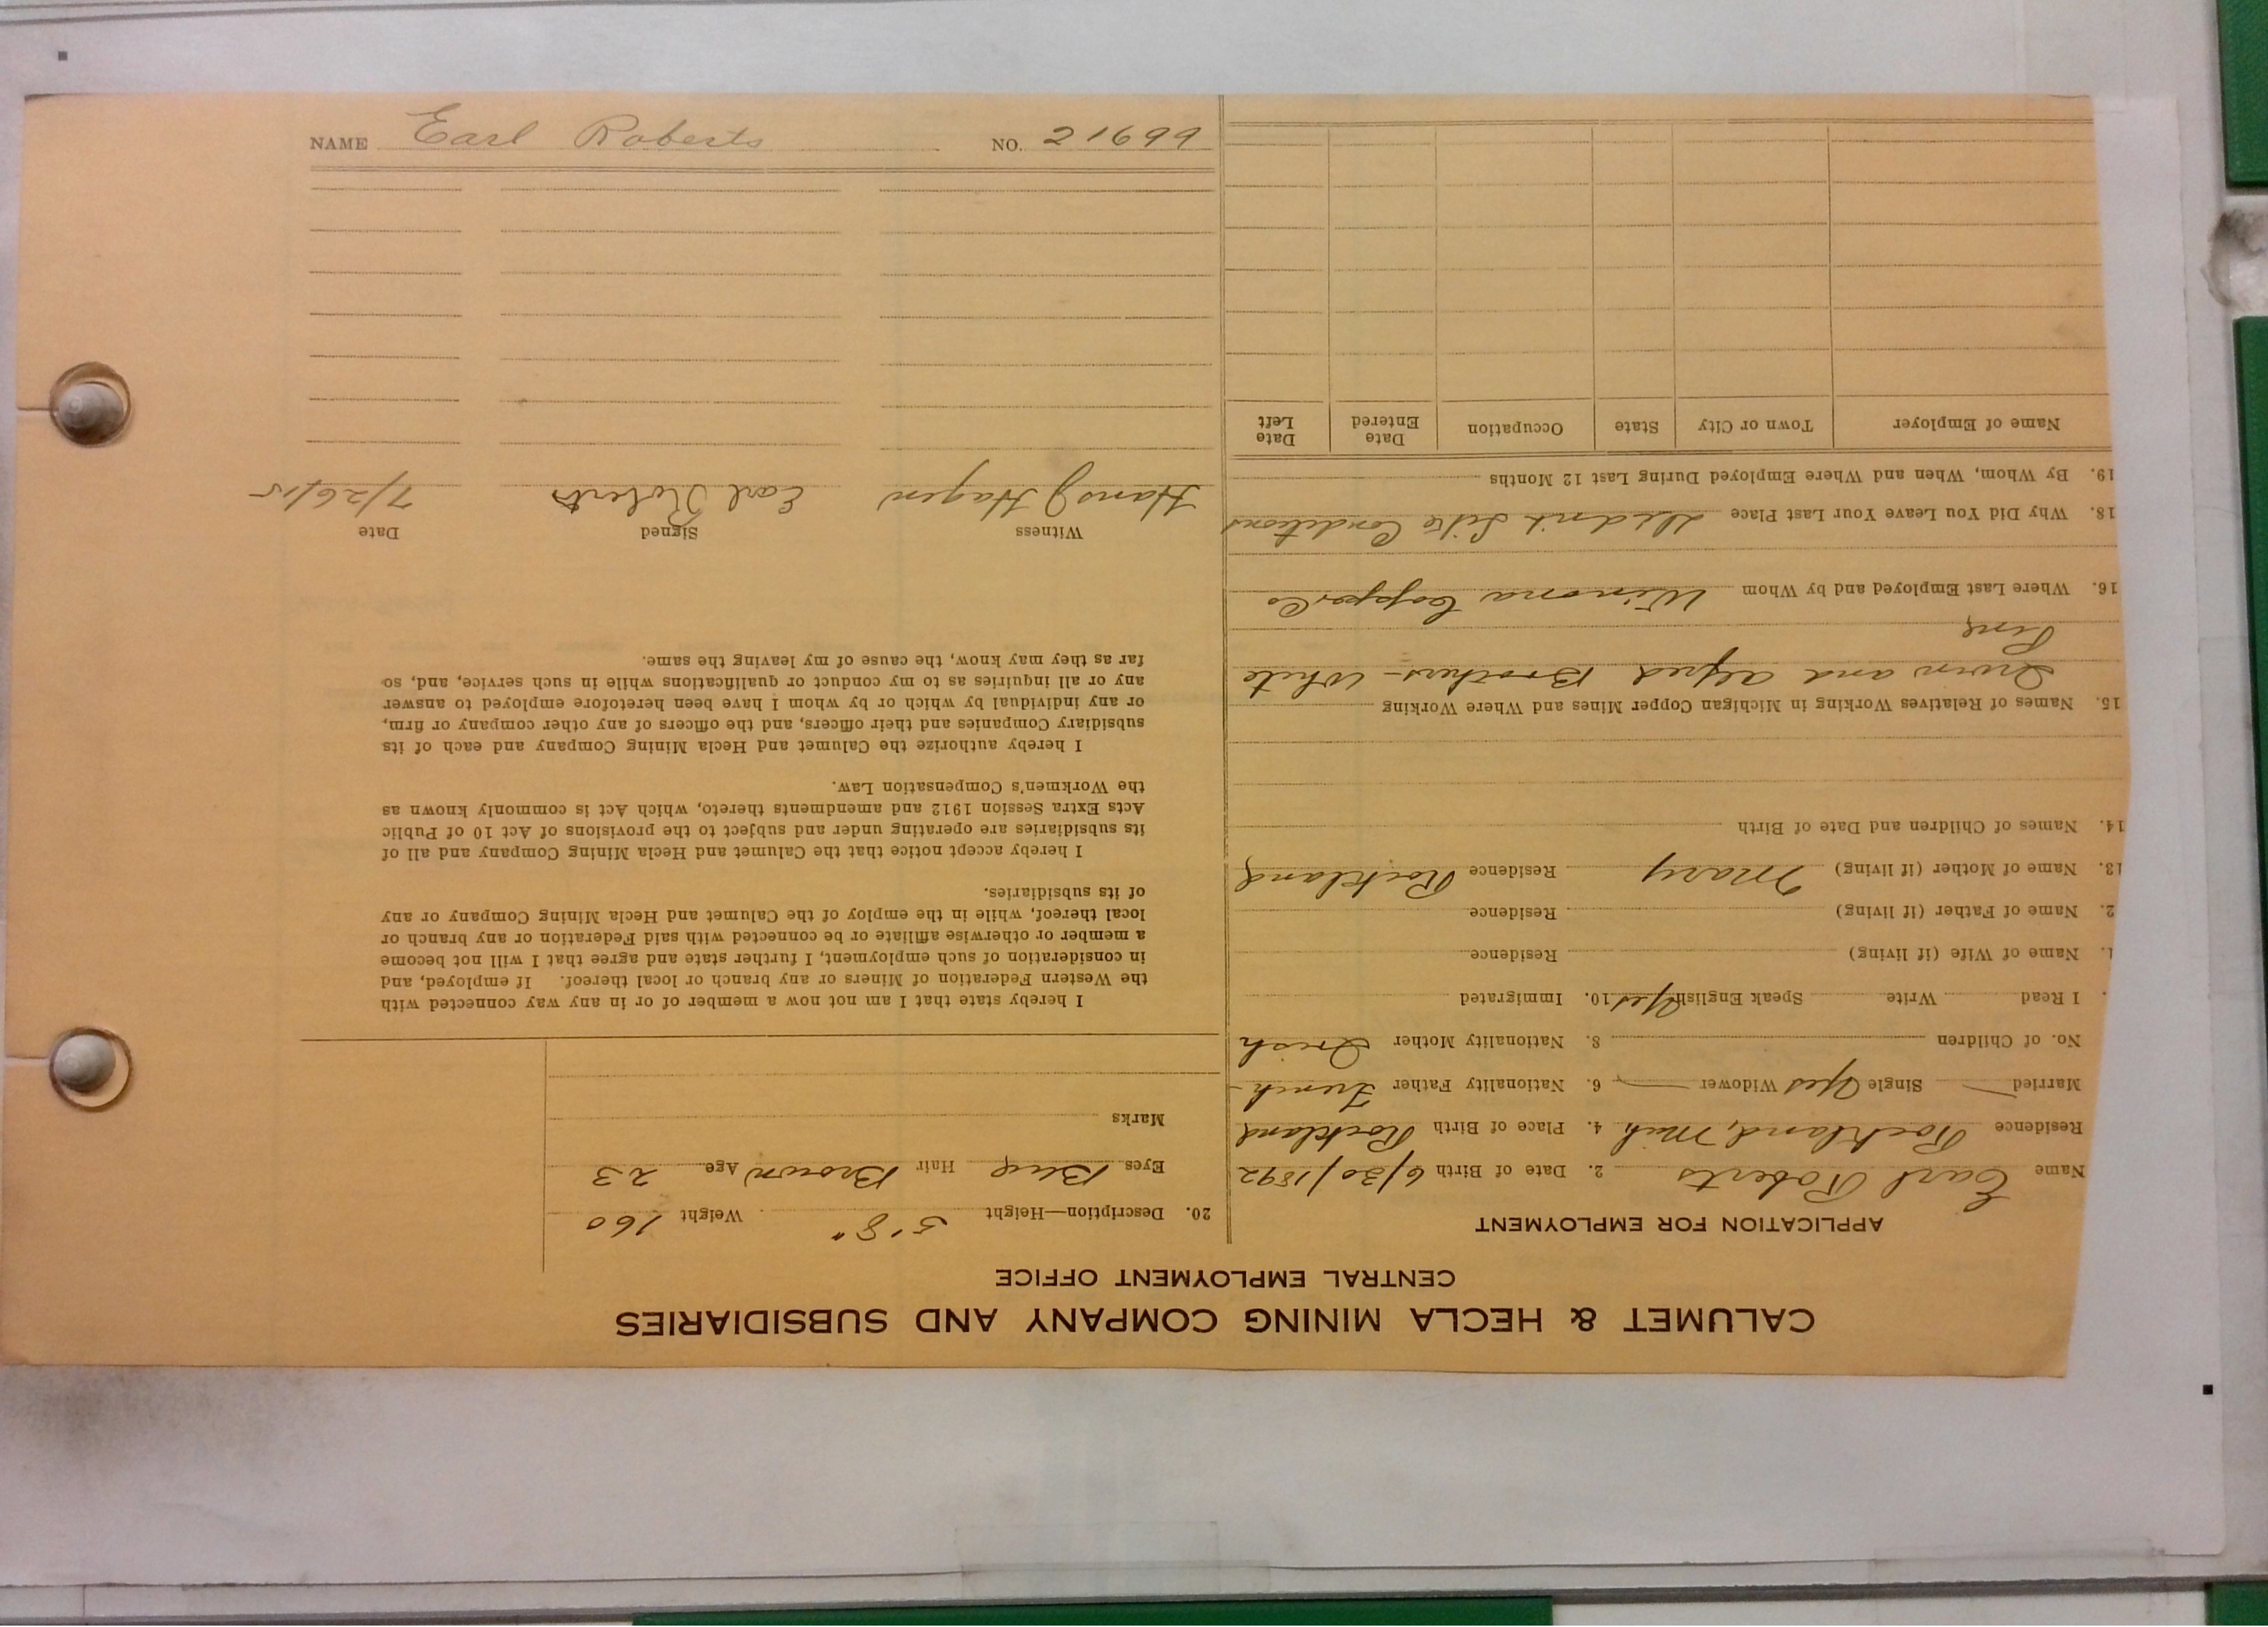 CALUMET & HECLA MINING COMPANY AND SUBSIDIARIES
CENTRAL EMPLOYMENT OFFICE
APPLICATION FOR EMPLOYMENT
Name Earl Roberts 2. Date of Birth 6/30/1892
Residence Rockland, Mich. 4. Place of Birth Rockland
Married Single Yes Widower 6. Nationality Father French
No. of Children 8. Nationality Mother Irish
. I Read Write Speak English Yes 10. Immigrated
1. Name of Wife (if living) Residence
2. Name of Father (if living) Residence
13. Name of Mother (if living) Mary Residence Rockland
14. Names of Children and Date of Birth
15. Names of Relatives Working in Michigan Copper Mines and Where Working
Irwin and Alfred Brothers - White
Pine
16. Where Last Employed and by Whom Winona Copper Co
18. Why Did You Leave Your Last Place Didn't Like Conditions
19. By Whom, When and Where Employed During Last 12 Months
Name of Employer Town or City State Occupation Date Entered Date Left
20. Description—Height 5'8" Weight 160
Eyes Blue Hair Brown Age 23
Marks
I hereby state that I am not now a member of or in any way connected with
the Western Federation of Miners or any branch or local thereof. If employed, and
in consideration of such employment, I further state and agree that I will not become
a member or otherwise affiliate or be connected with said Federation or any branch or
local thereof, while in the employ of the Calumet and Hecla Mining Company or any
of its subsidiaries.
I hereby accept notice that the Calumet and Hecla Mining Company and all of
its subsidiaries are operating under and subject to the provisions of Act 10 of Public
Acts Extra Session 1912 and amendments thereto, which Act is commonly known as
the Workmen's Compensation Law.
I hereby authorize the Calumet and Hecla Mining Company and each of its
subsidiary Companies and their officers, and the officers of any other company or firm,
or any individual by which or by whom I have been heretofore employed to answer
any or all inquiries as to my conduct or qualifications while in such service, and, so
far as they may know, the cause of my leaving the same.
Witness Signed Date
Hans J Hagen Earl Roberts 7/26/15
NAME Earl Roberts NO. 21699